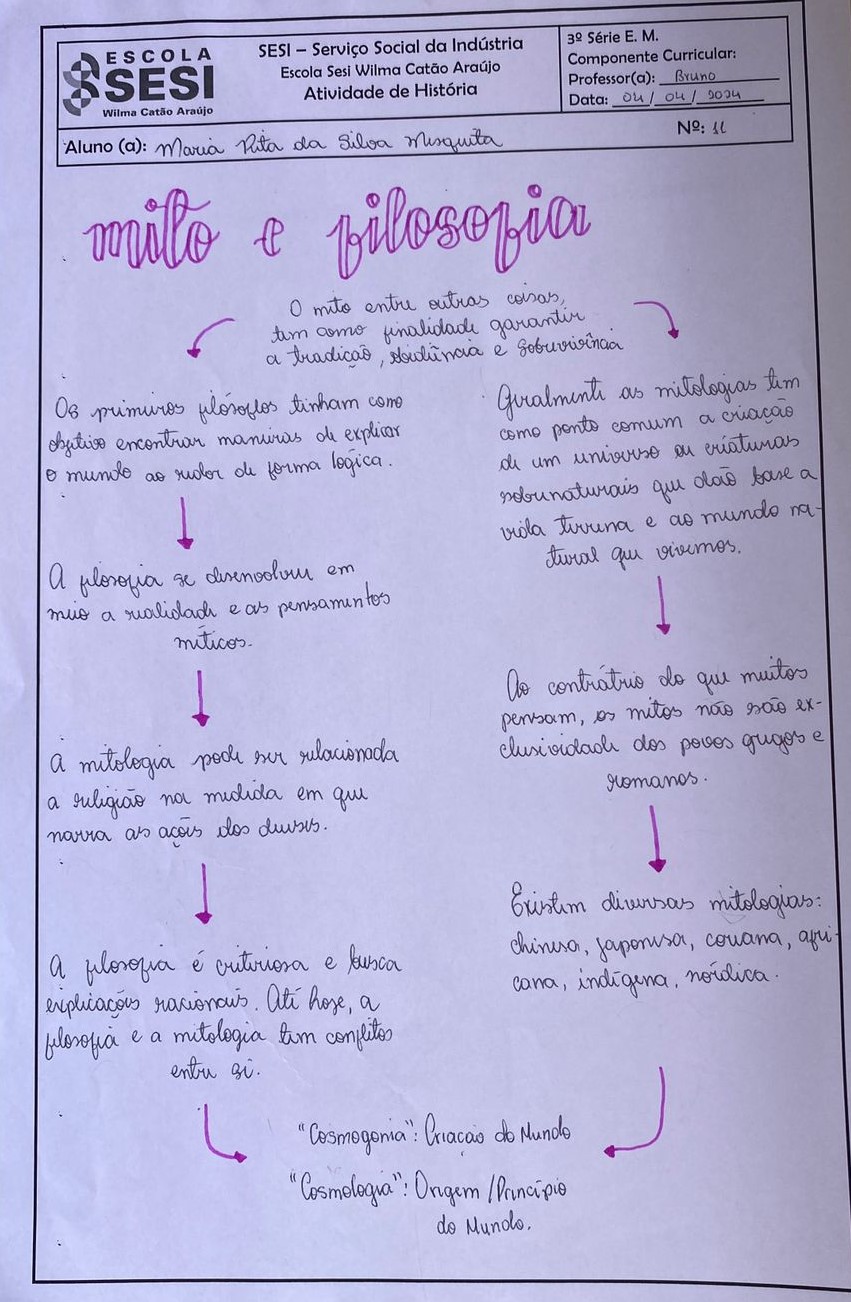 ESCOLA
SESI
Wilma Catão Araújo
SESI – Serviço Social da Indústria
Escola Sesi Wilma Catão Araújo
Atividade de História
3º Série E. M.
Componente Curricular:
Professor(a): Bruno
Data: 04 / 04 / 2024
Aluno (a): Maria Rita da Silva Mesquita
Nº: 11
mito e filosofia
O mito entre outras coisas,
tem como finalidade garantir
a tradição, obidiência e sobrevivência
Os primeiros filósofos tinham como
objetivo encontrar maneiras de explicar
o mundo ao redor de forma lógica.
A filosofia se desenvolveu em
meio a realidade e as pensamentos
míticos.
A mitologia pode ser relacionada
a religião na medida em que
narra as ações dos deuses.
A filosofia é criteriosa e busca
explicações racionais. Até hoje, a
filosofia e a mitologia tem conflitos
entre si.
Geralmente as mitologias tem
como ponto comum a criação
de um universo ou criaturas
sobrenaturais que dão base a
vida terrena e ao mundo na-
tural que vivemos.
Ao contrátrio do que muitos
pensam, os mitos não são ex-
clusividade dos povos gregos e
romanos.
Existem diversas mitologias:
chinesa, japonesa, coreana, afri-
cana, indígena, nórdica.
"Cosmogonia": Criação do Mundo
"Cosmologia": Origem / Princípio
do Mundo.